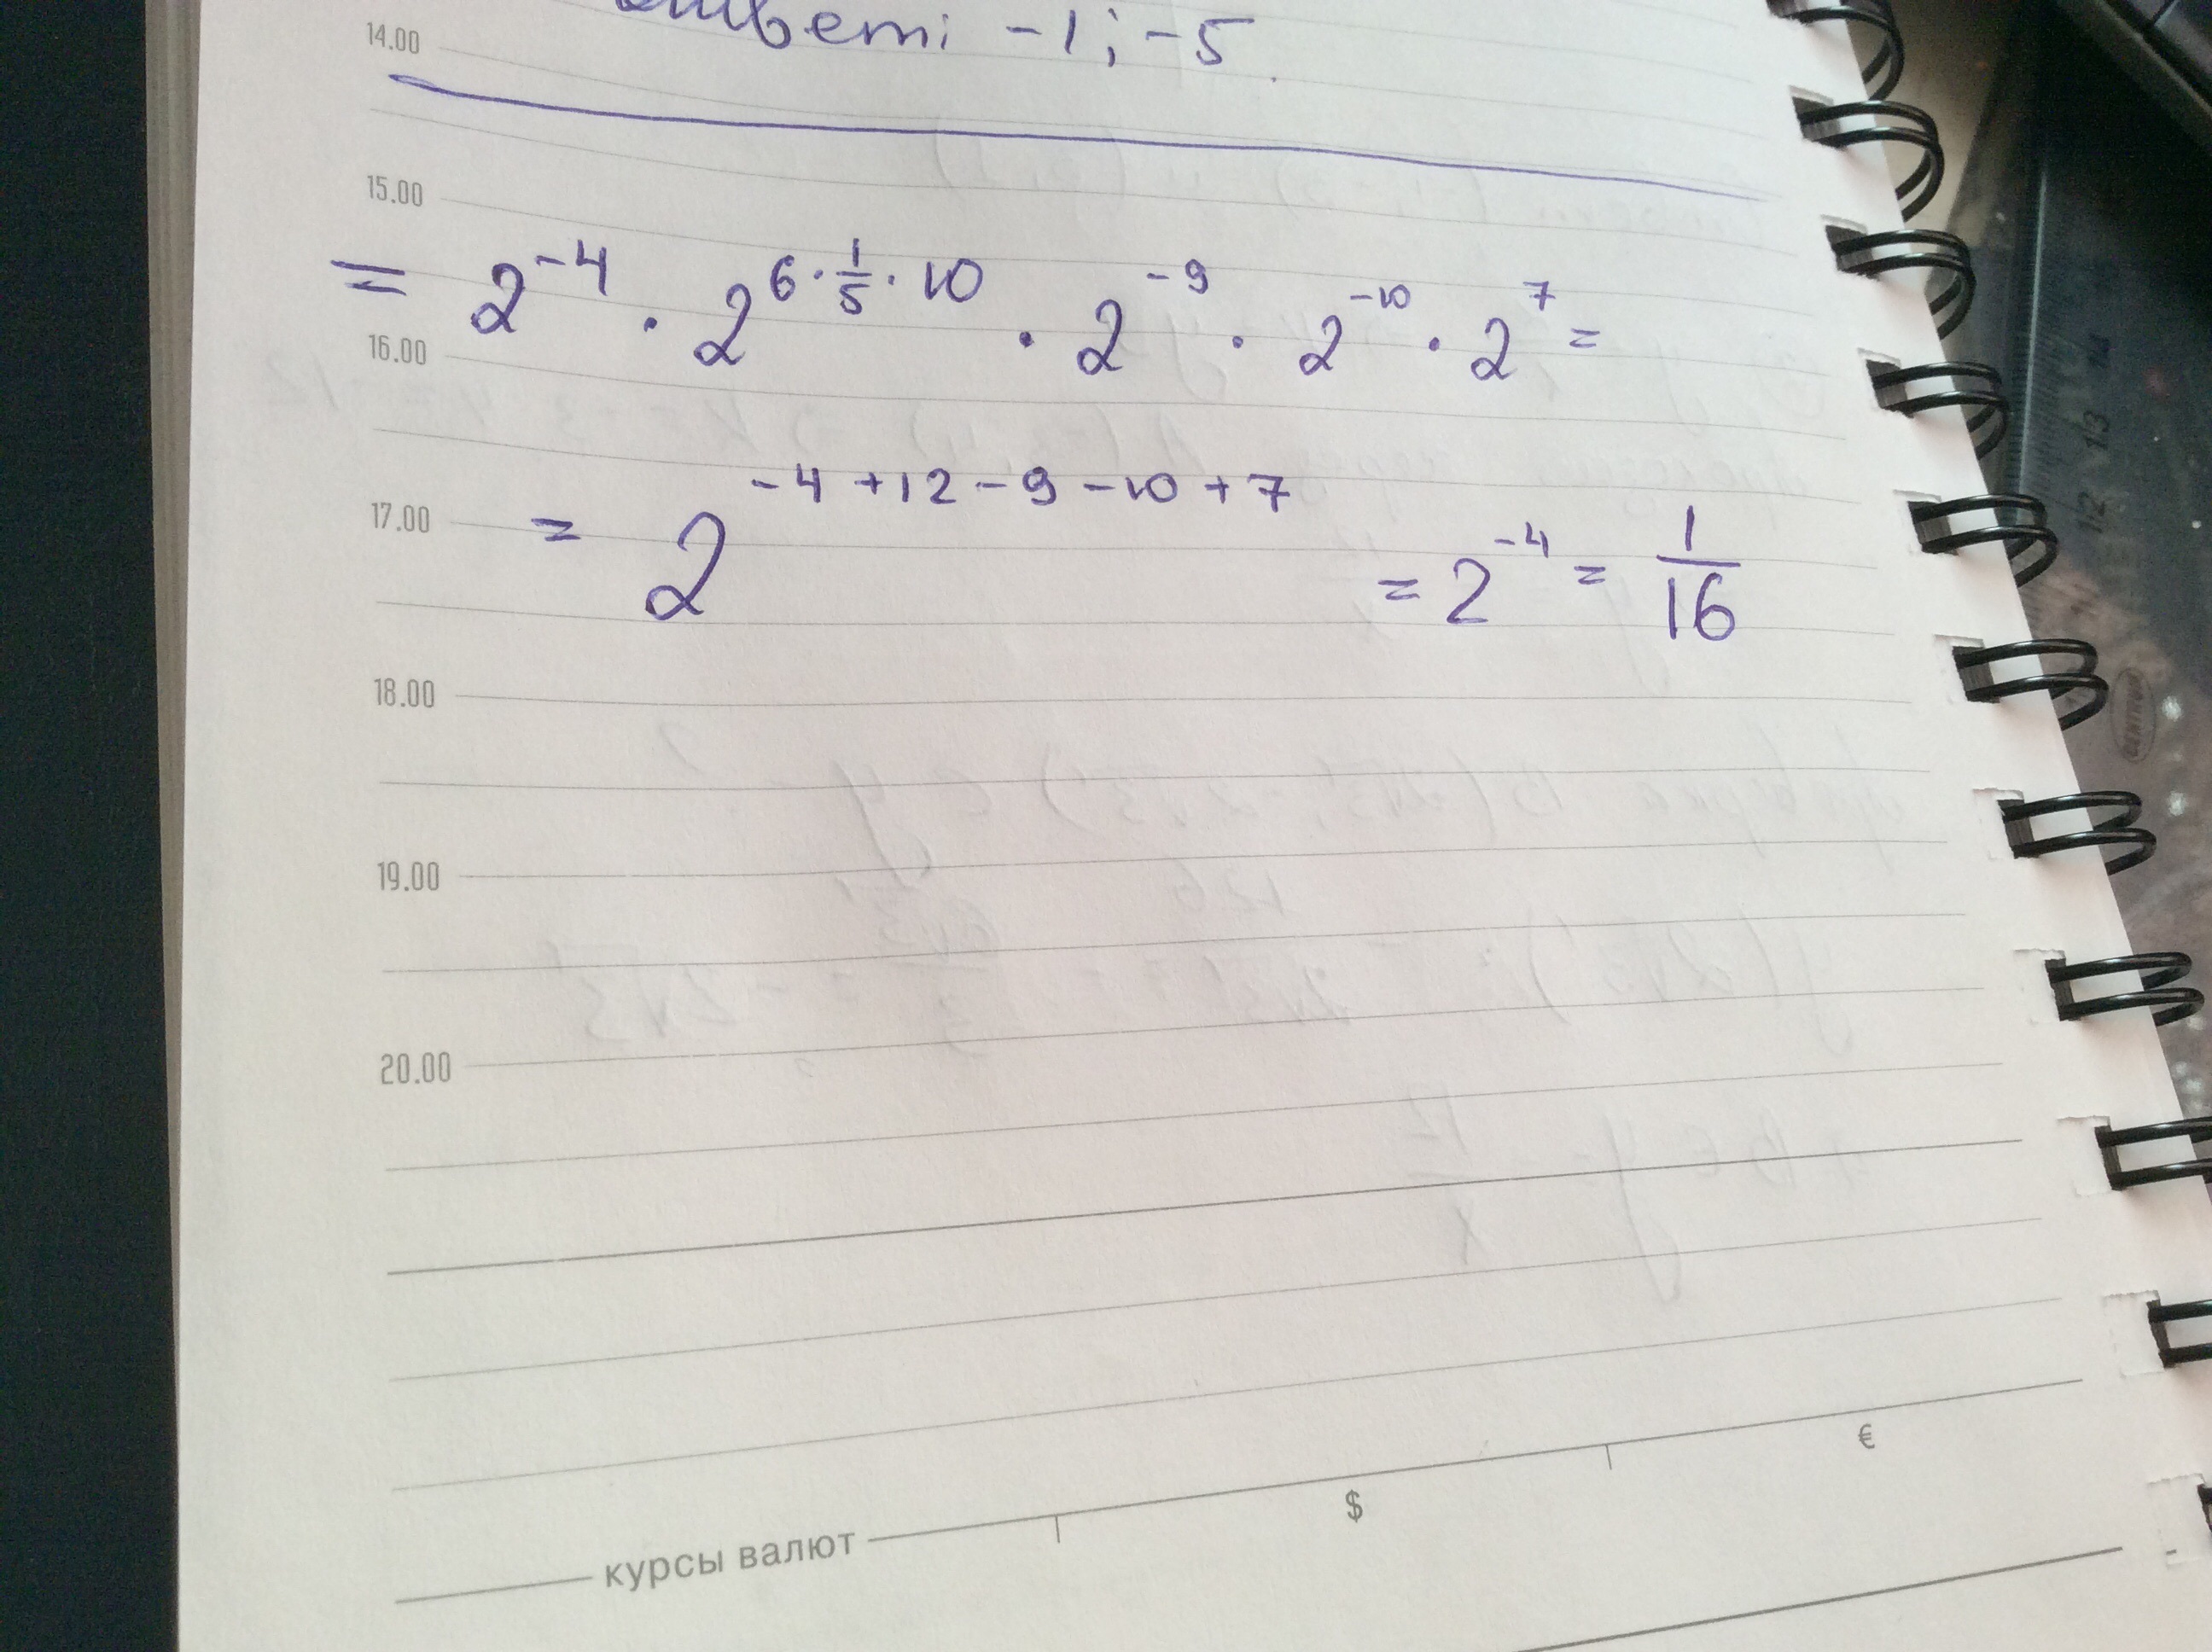 Ответ: -1; -5.
14.00
15.00
= 2^{-4} · 2^{6·\frac{1}{5}·10} · 2^{-9} · 2^{-10} · 2^{7} =
16.00
17.00
= 2^{-4+12-9-10+7} = 2^{-4} = \frac{1}{16}
18.00
19.00
20.00
курсы валют $ €